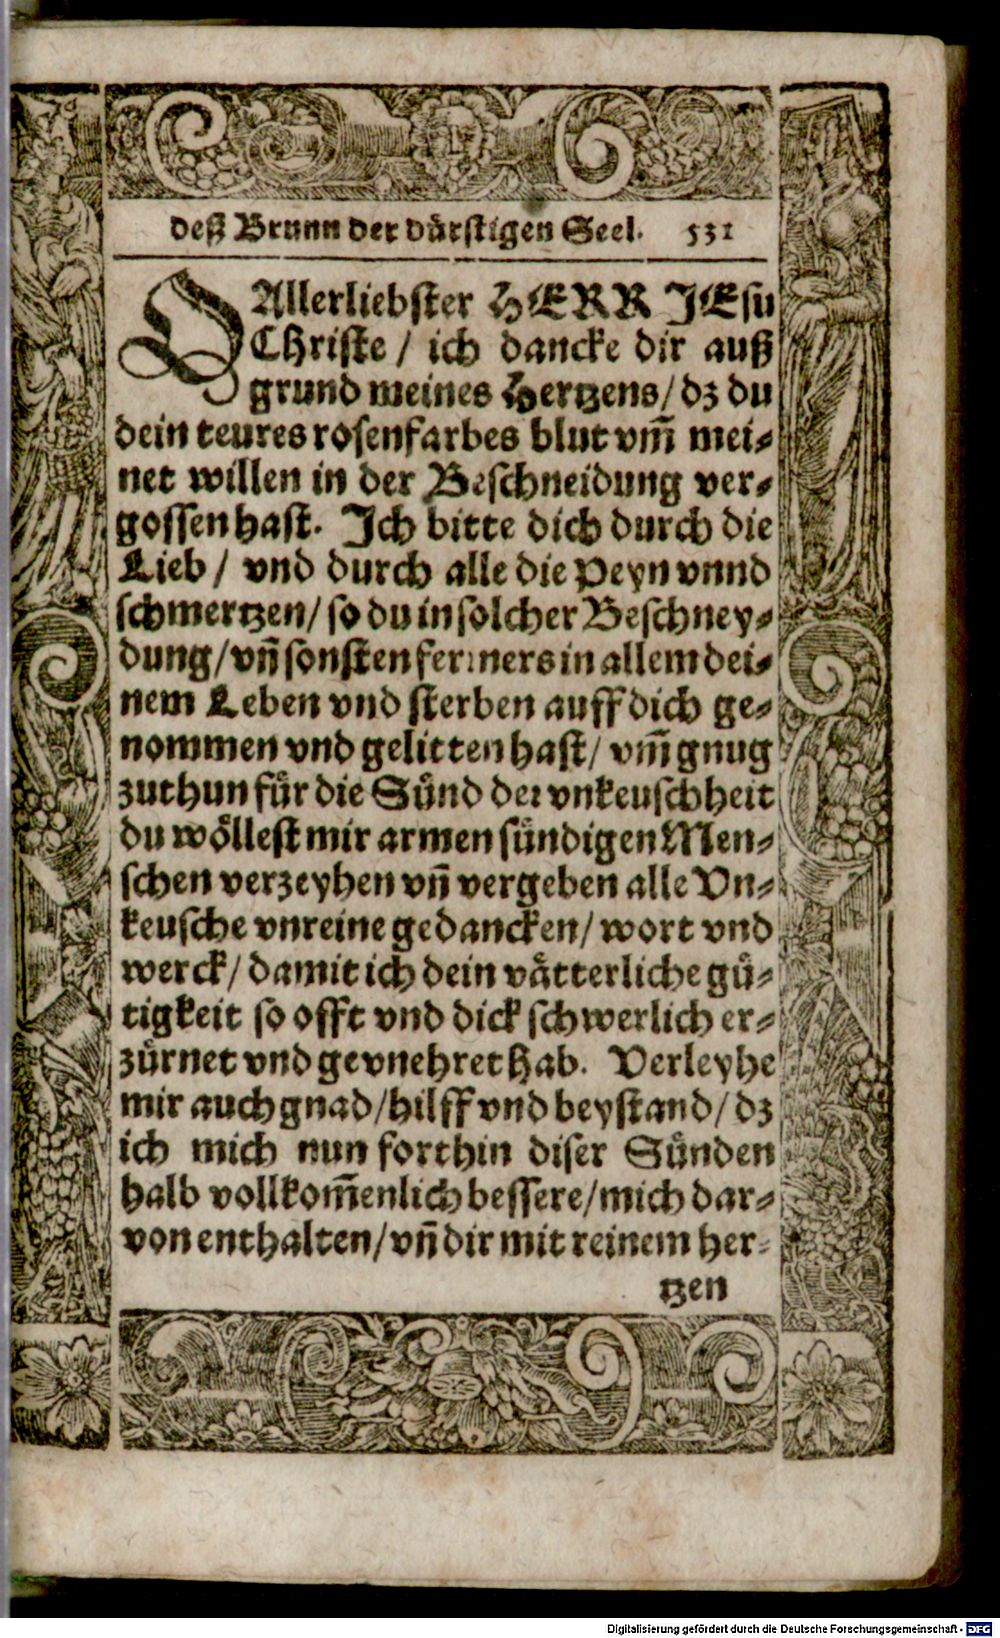 deß Brunn der dürstigen Seel. 531
O Allerliebster HERR JEsu
Christe / ich dancke dir auß
grund meines Hertzens / dz du
dein teures rosenfarbes blut vm̃ mei⸗
net willen in der Beschneidung ver⸗
gossen hast. Ich bitte dich durch die
Lieb / vnd durch alle die Peyn vnnd
schmertzen / so du in solcher Beschney⸗
dung / vñ sonsten ferrners in allem dei⸗
nem Leben vnd sterben auff dich ge⸗
nommen vnd gelitten hast / vm̃ gnug
zuthun für die Sünd der vnkeuschheit
du wöllest mir armen sündigen Men⸗
schen verzeyhen vñ vergeben alle Vn⸗
keusche vnreine gedancken / wort vnd
werck / damit ich dein vätterliche gü⸗
tigkeit so offt vnd dick schwerlich er⸗
zürnet vnd gevnehret hab. Verleyhe
mir auch gnad / hilff vnd beystand / dz
ich mich nun forthin diser Sünden
halb vollkom̃enlich bessere / mich dar⸗
von enthalten / vñ dir mit reinem her⸗
tzen
Digitalisierung gefördert durch die Deutsche Forschungsgemeinschaft - DFG